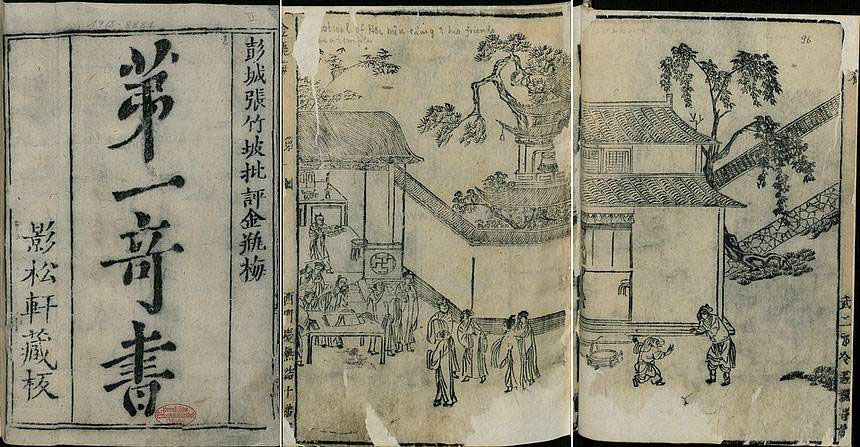 彭城張竹坡批評金瓶梅
第一奇書
影松軒藏板
of Hsi mên & his friends
a temple
西門慶熱結十弟
96
武二郎冷遇親哥哥